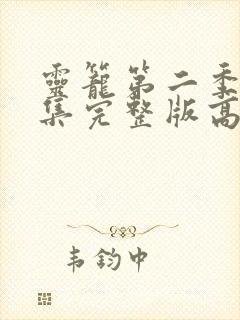 靈籠第二季
集完整版高
韦鈞中